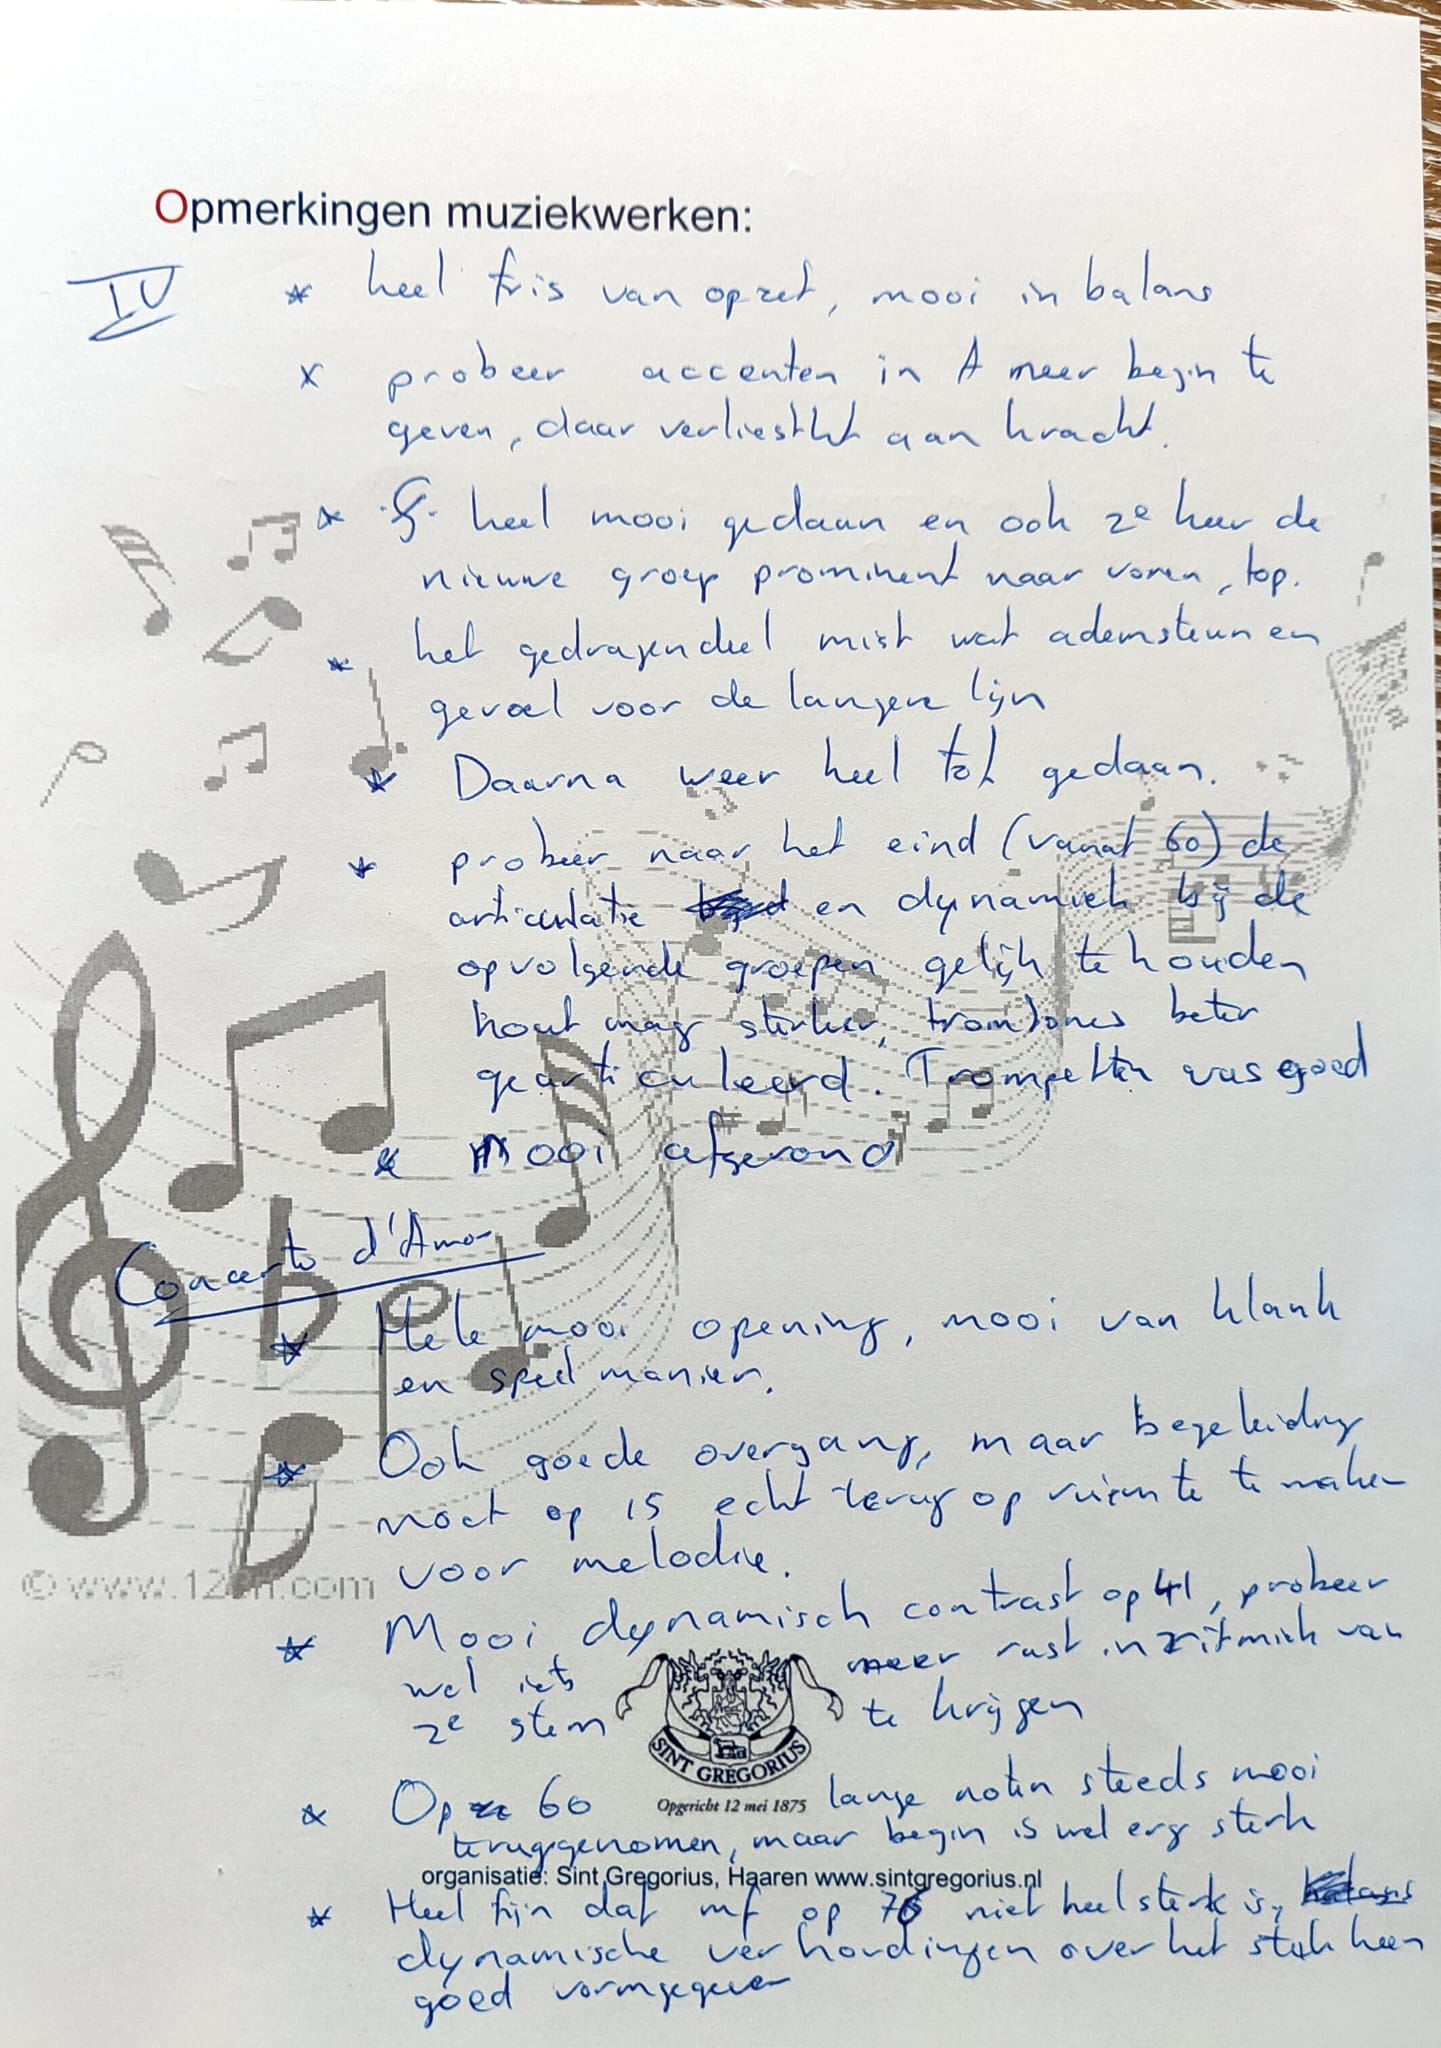 Opmerkingen muziekwerken:
IV * heel fris van opzet, mooi in balans
x probeer accenten in A meer begin te
geven, daar verliest het aan kracht.
* 𝄋 heel mooi gedaan en ook 2e keer de
nieuwe groep prominent naar voren, top.
* het gedragen deel mist wat ademsteun en
gevoel voor de langere lijn
* Daarna weer heel tof gedaan.
* probeer naar het eind (vanaf 60) de
articulatie en dynamiek bij de
opvolgende groepen gelijk te houden
hout mag sterker, trombones beter
gearticuleerd. Trompetten was goed
* Mooi afgerond
Concerto d'Amore
* Hele mooi opening, mooi van klank
en speelmanier.
* Ook goede overgang, maar begeleiding
moet op 15 echt terug op ruimte te maken
voor melodie.
* Mooi dynamisch contrast op 41, probeer
wel iets meer rust in ritmiek van
2e stem te krijgen
SINT GREGORIUS
Opgericht 12 mei 1875
* Op 60 lange noten steeds mooi
teruggenomen, maar begin is wel erg sterk
organisatie: Sint Gregorius, Haaren www.sintgregorius.nl
* Heel fijn dat mf op 76 niet heel sterk is,
dynamische verhoudingen over het stuk heen
goed vormgegeven